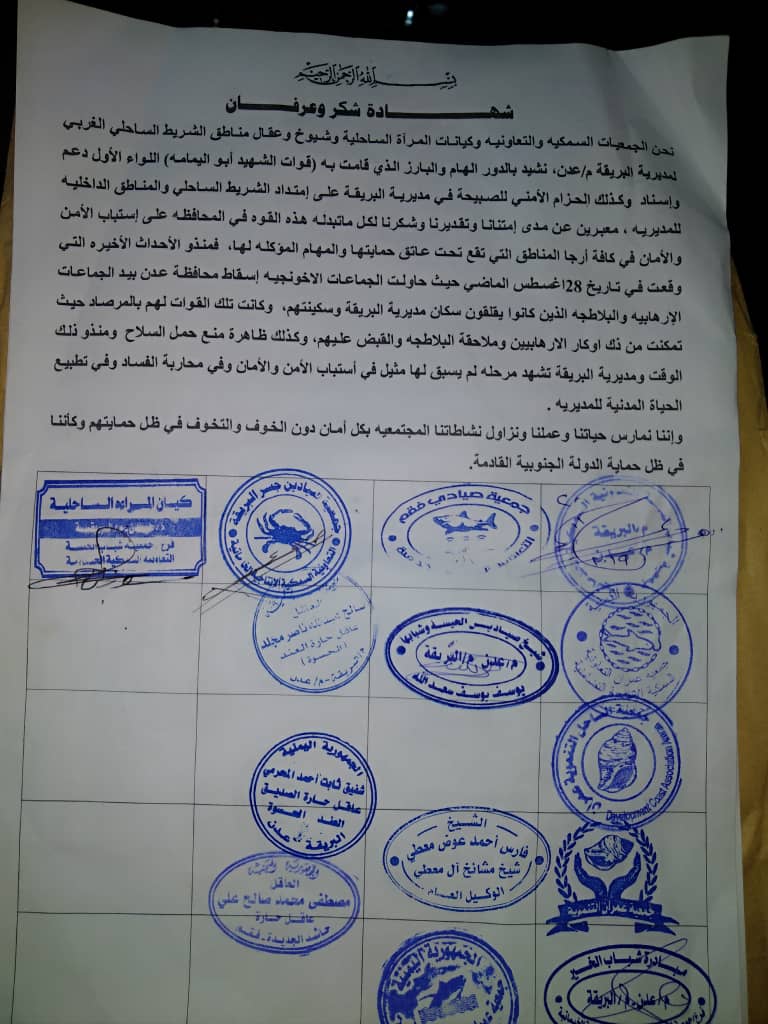 بسم الله الرحمن الرحيم
شهـــادة شكر وعرفـــان
نحن الجمعيات السمكيه والتعاونيه وكيانات المرآة الساحلية وشيوخ وعقال مناطق الشريط الساحلي الغربي
لمديرية البريقة م/عدن، نشيد بالدور الهام والبارز الذي قامت به (قوات الشهيد أبو اليمامه) اللواء الأول دعم
وإسناد وكذلك الحزام الأمني للصبيحة في مديرية البريقة على إمتداد الشريط الساحلي والمناطق الداخليه
للمديريه ، معبرين عن مدى إمتنانا وتقديرنا وشكرنا لكل ماتبدله هذه القوه في المحافظه على إستباب الأمن
والأمان في كافة أرجا المناطق التي تقع تحت عاتق حمايتها والمهام المؤكله لها، فمنذو الأحداث الأخيره التي
وقعت في تاريخ 28اغسطس الماضي حيث حاولت الجماعات الاخونجيه إسقاط محافظة عدن بيد الجماعات
الإرهابيه والبلاطجه الذين كانوا يقلقون سكان مديرية البريقة وسكينتهم، وكانت تلك القوات لهم بالمرصاد حيث
تمكنت من ذك اوكار الارهابيين وملاحقة البلاطجه والقبض عليهم، وكذلك ظاهرة منع حمل السلاح ومنذو ذلك
الوقت ومديرية البريقة تشهد مرحله لم يسبق لها مثيل في أستباب الأمن والأمان وفي محاربة الفساد وفي تطبيع
الحياة المدنية للمديريه .
وإننا نمارس حياتنا وعملنا ونزاول نشاطاتنا المجتمعيه بكل أمان دون الخوف والتخوف في ظل حمايتهم وكأننا
في ظل حماية الدولة الجنوبية القادمة.
م/البريقة
جمعية صيادي فقم
جمعية صيادين جسر البريقة
التعاونية السمكية الإنتاجية
كيان المراءه الساحلية
فرع جمعية شباب الحسوة
جمعية عمران
شيخ صيادين الحيسه وشبابها
م/عدن م/البريقة
يوسف يوسف سعد الله
العاقل
عاقل حارة العند
(الحسوة)
م/البريقة - م/عدن
جمعية الساحل التنموية عمران
Development Coast Association
الجمهورية اليمنية
شفيق ثابت أحمد المحرمي
عاقل حارة الصديق
العند الحسوة
البريقة عدن
الشيخ
فارس أحمد عوض معطي
شيخ مشائخ آل معطي
الوكيل العام
جمعية عمران التنموية
العاقل
مصطفى محمد صالح علي
عاقل حارة
حاشد الجديدة - فقم
الجمهورية اليمنية
مبادرة شباب الخير
م/عدن - م/البريقة